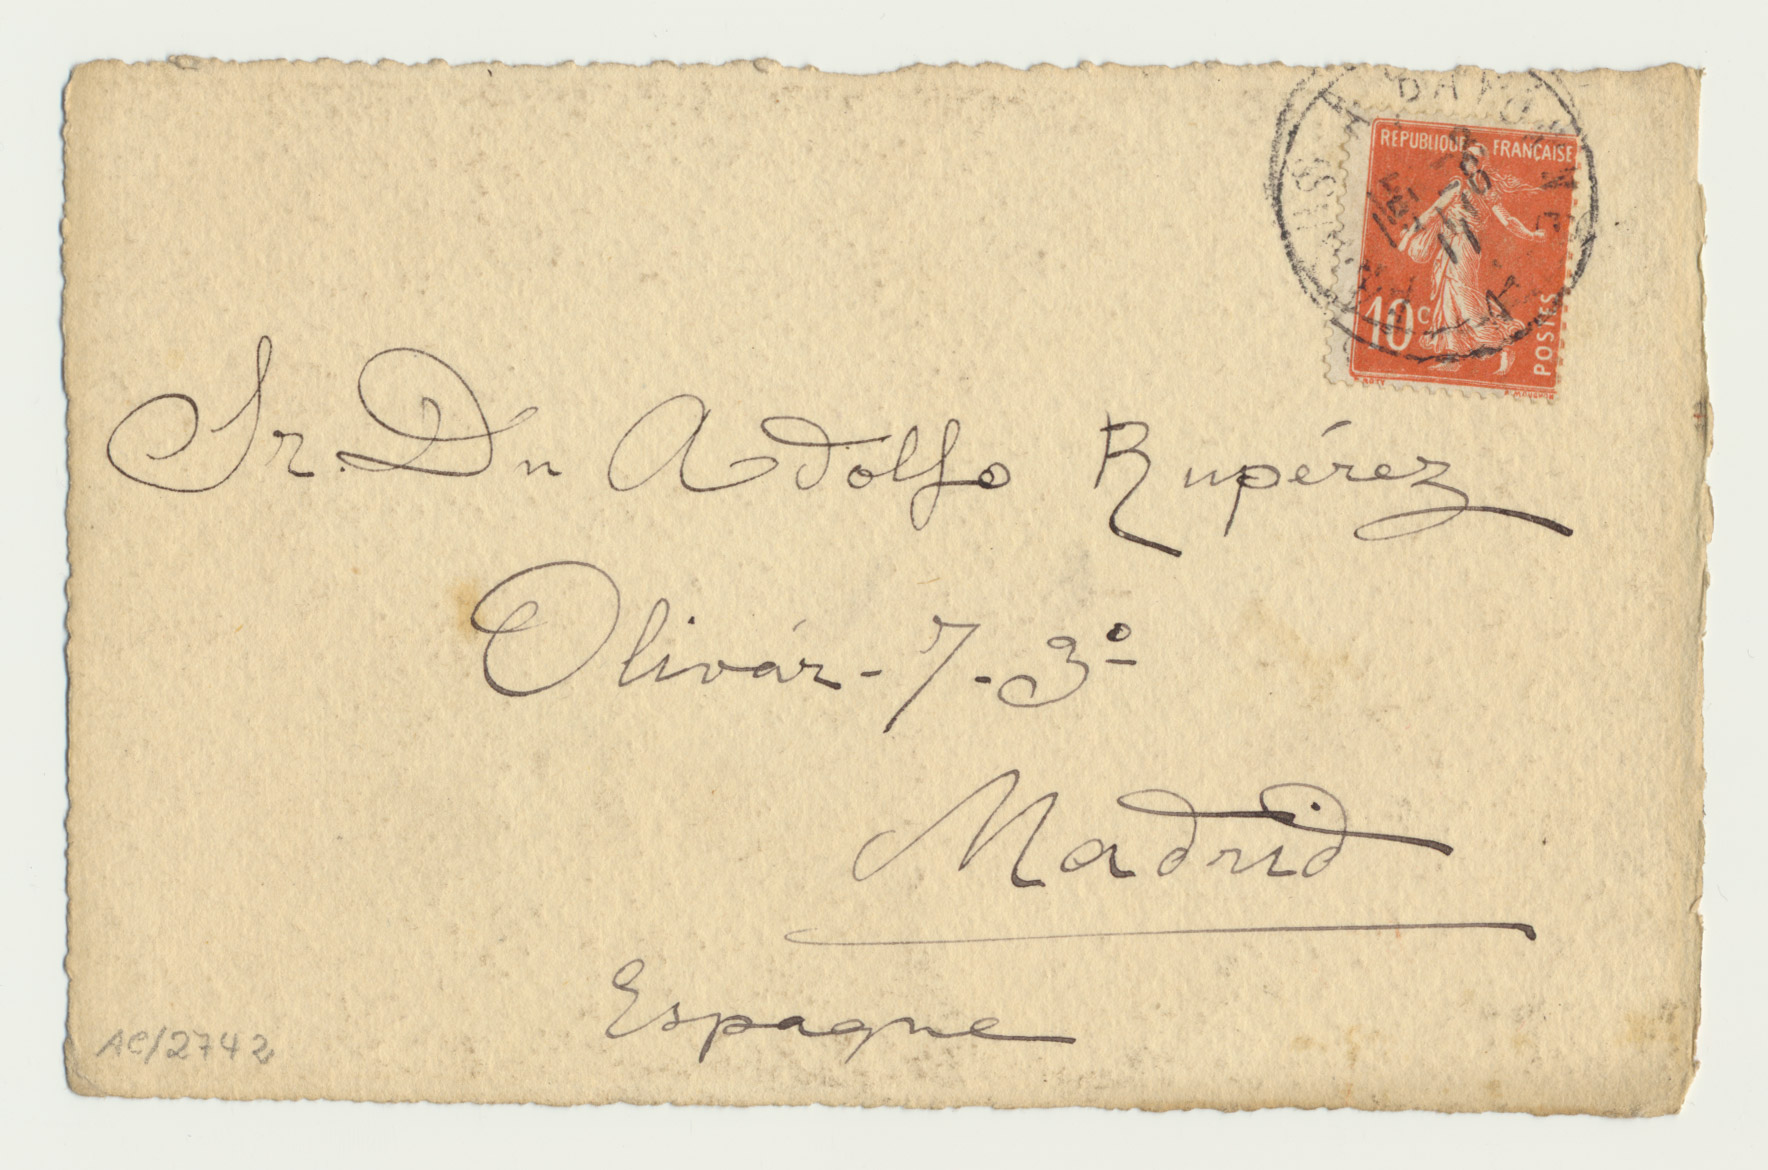 RÉPUBLIQUE FRANÇAISE
10 c
POSTES
Sr. Dn Adolfo Rupérez
Olivár - 7 - 3º
Madrid
Espagne
AC/2742